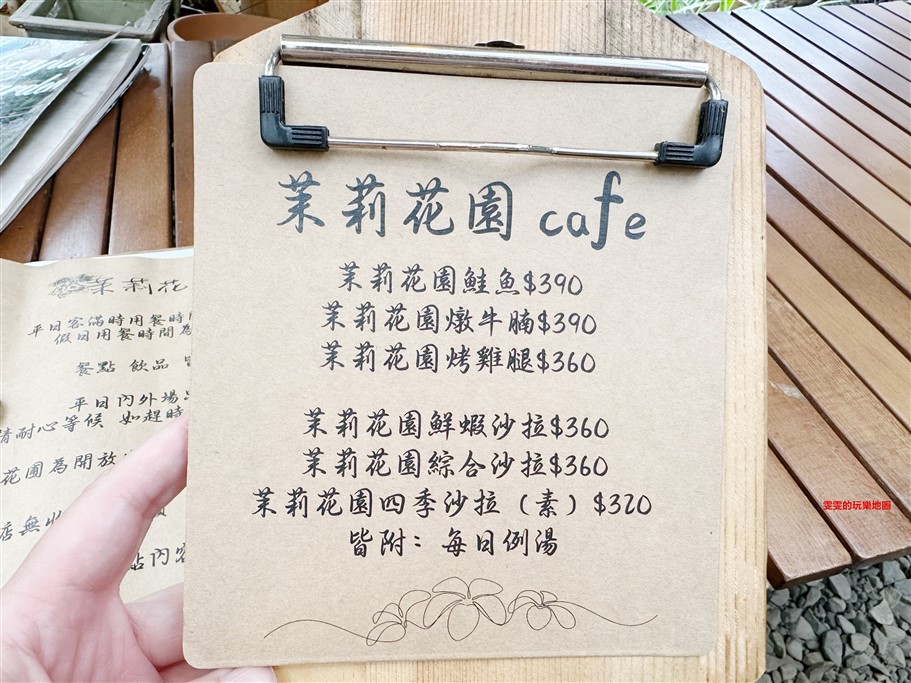 茉莉花園 cafe
茉莉花園鮭魚$390
茉莉花園燉牛腩$390
茉莉花園烤雞腿$360
茉莉花園鮮蝦沙拉$360
茉莉花園綜合沙拉$360
茉莉花園四季沙拉（素）$320
皆附：每日例湯
茉莉花
平日客滿時用餐時
假日用餐時間為
餐點 飲品
平日內外場
請耐心等候 如趕時
花圃為開放
店無收
點內容
雯雯的玩樂地圖